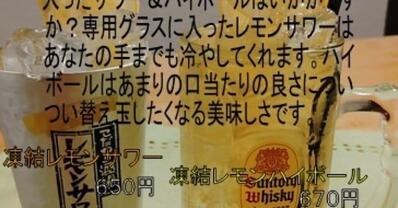 入ったサワー＆ハイボールはいかがです
か？専用グラスに入ったレモンサワーは
あなたの手までも冷やしてくれます。ハイ
ボールはあまりの口当たりの良さについ
つい替え玉したくなる美味しさです。
凍結レモンサワー
650円
凍結レモンハイボール
670円
レモンサワー
Suntory
Whisky